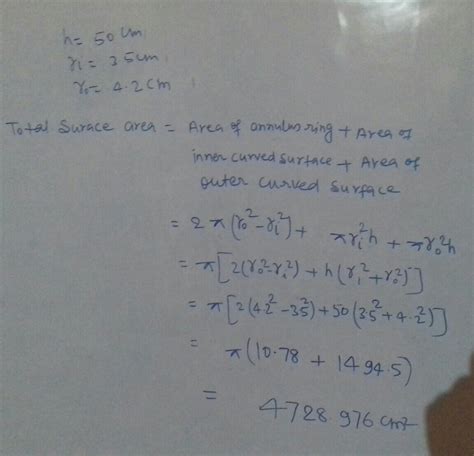 h = 50 cm
ri = 3.5cm
ro = 4.2cm
Total Surace area = Area of annulus ring + Area of
inner curved surface + Area of
outer curved surface
= 2π(ro²-ri²) + πri²h + πro²h
= π[2(ro²-ri²) + h(ri²+ro²)]
= π[2(4.2²-3.5²)+50(3.5²+4.2²)]
= π(10.78 + 1494.5)
= 4728.976 cm²